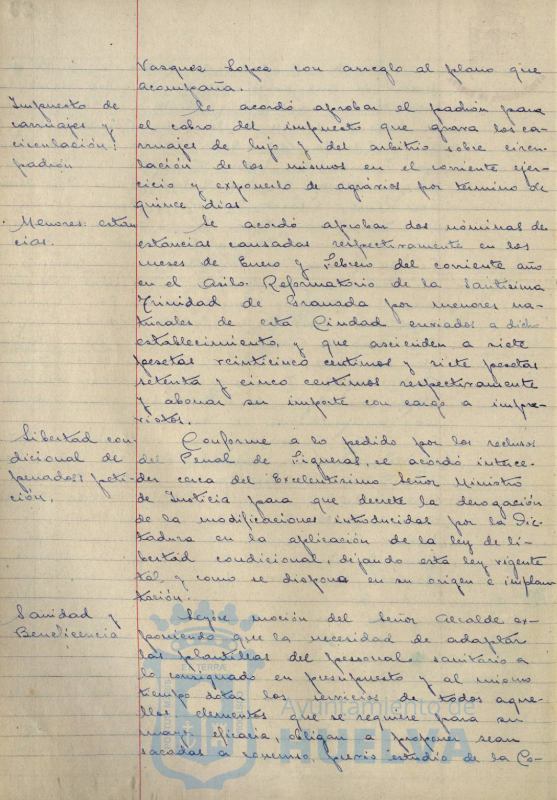 Vasquez Lopez con arreglo al plano que
acompaña.
Impuesto de
carruajes y
circulación:
padrón
Se acordó aprobar el padrón para
el cobro del impuesto que grava los ca-
rruajes de lujo y del arbitrio sobre circu-
lación de los mismos en el corriente ejer-
cicio y exponerlo de agravios por término de
quince días
Menores: estan
cias.
Se acordó aprobar dos nóminas de
estancias causadas respectivamente en los
meses de Enero y Febrero del corriente año
en el Asilo Reformatorio de la Santísima
Trinidad de Granada por menores na-
turales de esta Ciudad enviados a dicho
establecimiento, y que ascienden a siete
pesetas veinticinco centimos y siete pesetas
setenta y cinco centimos respectivamente
y abonar su importe con cargo a impre-
vistos.
Libertad con-
dicional de
penados: peti-
ción.
Conforme a lo pedido por los reclusos
del Penal de Figueras, se acordó interce-
der cerca del Excelentisimo Señor Ministro
de Justicia para que decrete la derogación
de la modificaciones introducidas por la Dic-
tadura en la aplicación de la ley de li-
bertad condicional, dejando esta ley vigente
tal y como se dispona en su origen e implan
tación.
Sanidad y
Beneficencia
moción del Señor Alcalde ex-
poniendo que la necesidad de adaptar
las plantillas del personal sanitario a
lo consignado en presupuesto y al mismo
tiempo dotar los servicios de todos aque-
llos elementos que se requiere para su
mayor eficacia, obligan a proponer sean
sacadas a concurso, previo estudio de la Co-
Ayuntamiento de
HUELVA